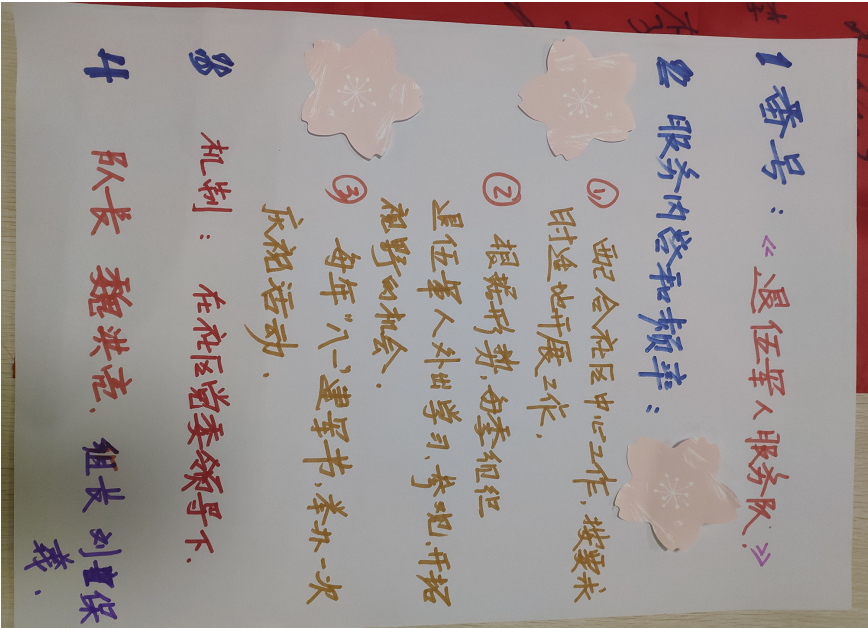 1 番号：《退伍军人服务队》
2 服务内容和频率：
① 配合社区中心工作，按要求
时逢地开展工作，
② 根据形势，每季组织
退伍军人外出学习、参观、开拓
视野的机会．
③ 每年“八一”建军节，举办一次
庆祝活动．
3 机制：在社区党委领导下．
4 队长 魏洪 组长 刘 保